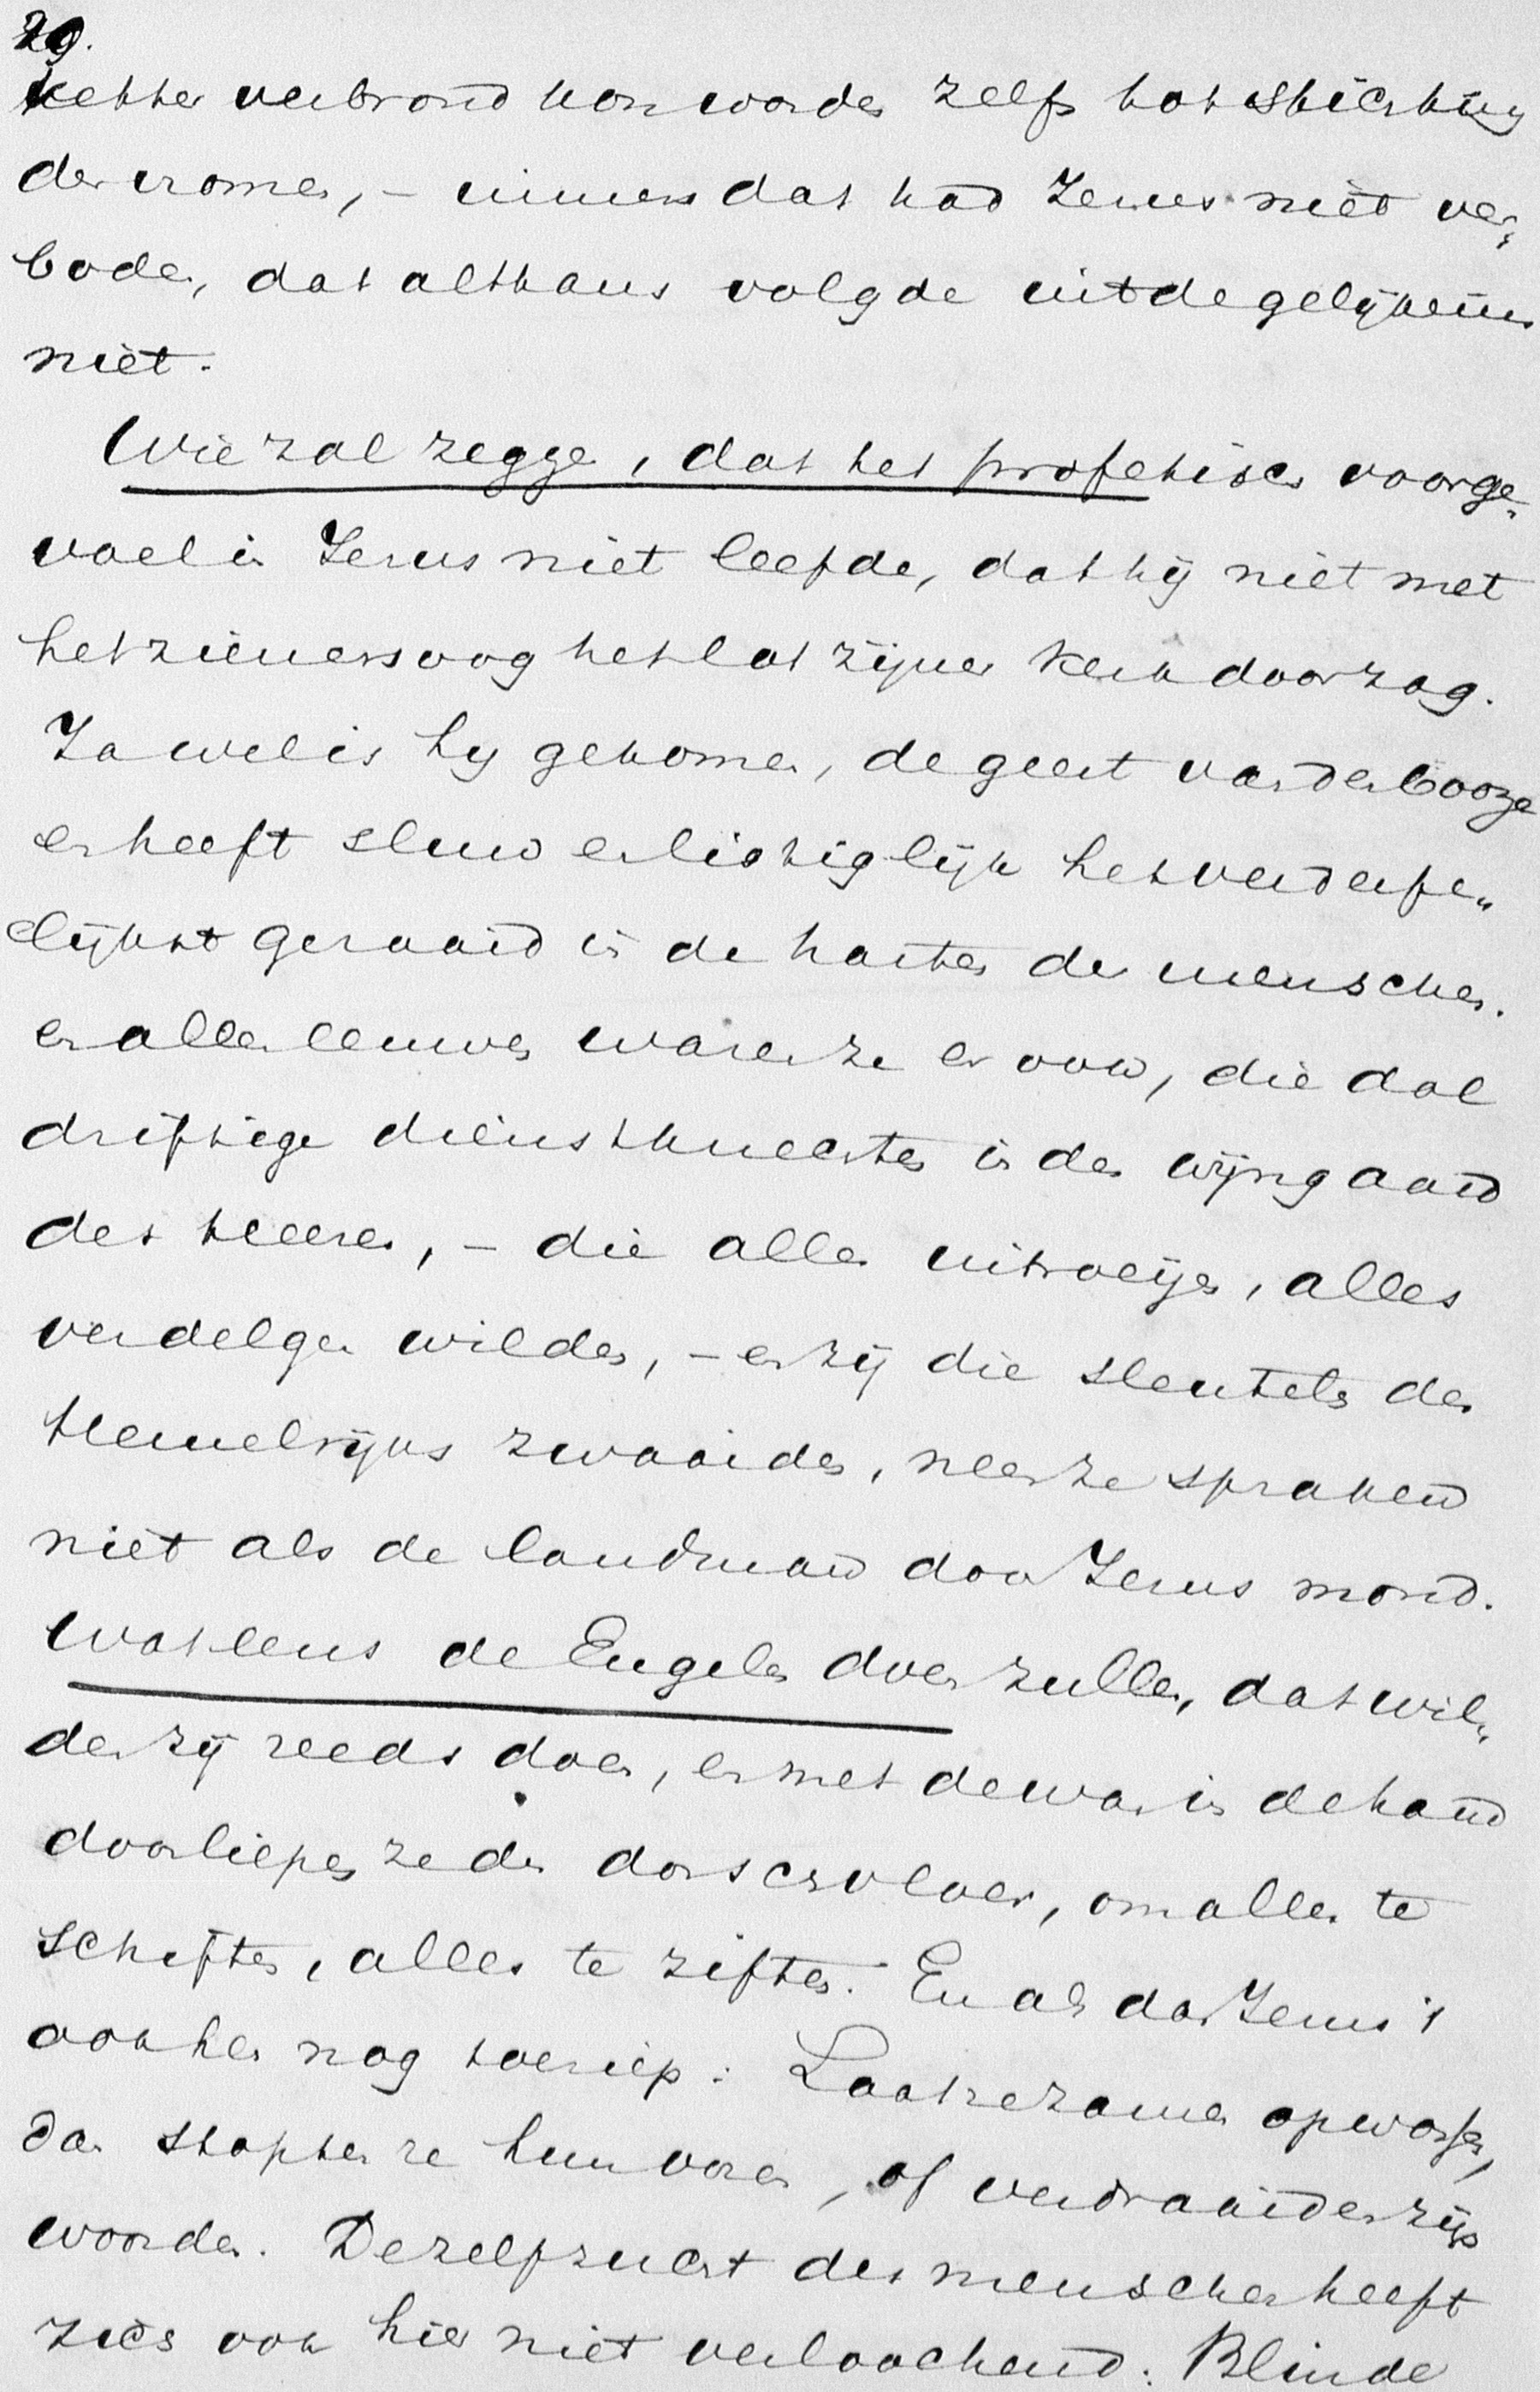 29.
ketter verbrand kon worden zelfs tot stichting
der vromen, – immers dat had Jezus niet ver„
boden, dat althans volgde uit de gelijkenis
niet.
Wie zal zeggen, dat het profetisch voorge„
voel in Jezus niet leefde, dat hij niet met
het zienersoog het lot zijner kerk doorzag.
Ja wel is hij gekomen, de geest van den booze
en heeft sluw en listiglijk het verderfe„
lijkst gezaaid in de harten der menschen.
en alle eeuwen waren ze er ook, die dol
driftige dienstknechten in den wijngaard
des Heeren, – die alles uitroeijen, alles
verdelgen wilden, – en zij die sleutels des
Hemelrijks zwaaiden, neen ze spraken
niet als de landman door Jezus mond.
Wat eens de Engelen doen zullen, dat wil„
den zij reeds doen, en met de wan in de hand
doorliepen ze den dorschvloer, om alles te
schiften, alles te ziften. En als dan Jezus 't
ook hen nog toeriep: Laat ze zamen opwassen,
dan stopten ze hun ooren, of verdraaiden zijn
woorden. De zelfzucht der menschen heeft
zich ook hier niet verloochend. Blinde